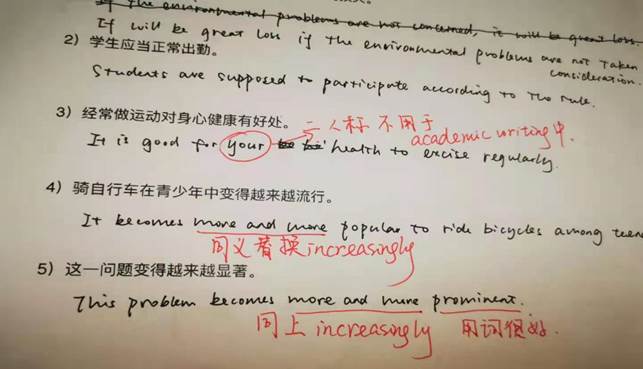 If the environmental problems are not concerned, it will be great loss
If will be great loss if the environmental problems are not taken
consideration.
2）学生应当正常出勤。
Students are supposed to participate according to the rule.
3）经常做运动对身心健康有好处。
二人称 不用于
academic writing中.
It is good for your health to excise regularly.
4）骑自行车在青少年中变得越来越流行。
It becomes more and more popular to ride bicycles among teen
同义替换increasingly
5）这一问题变得越来越显著。
This problem becomes more and more prominent.
同上 increasingly 用词很好.